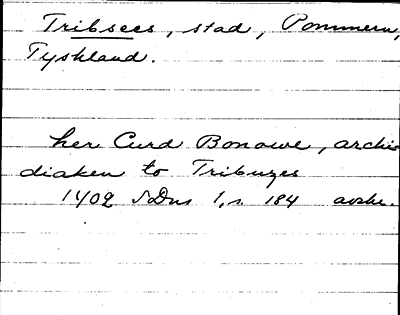 Tribsees, stad, Pommern,
Tyskland.
her Curd Bonowe, archi
diaken to Tribuzes
1402 SDns 1, s. 184 avskr.